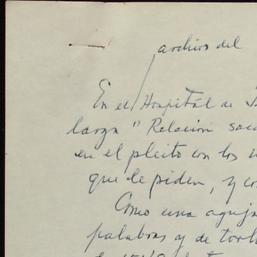 archivo del
En el Hospitál de
larga "Relación sac
en el pleito con los
que le piden, y co
Como una aguja
palabras y de